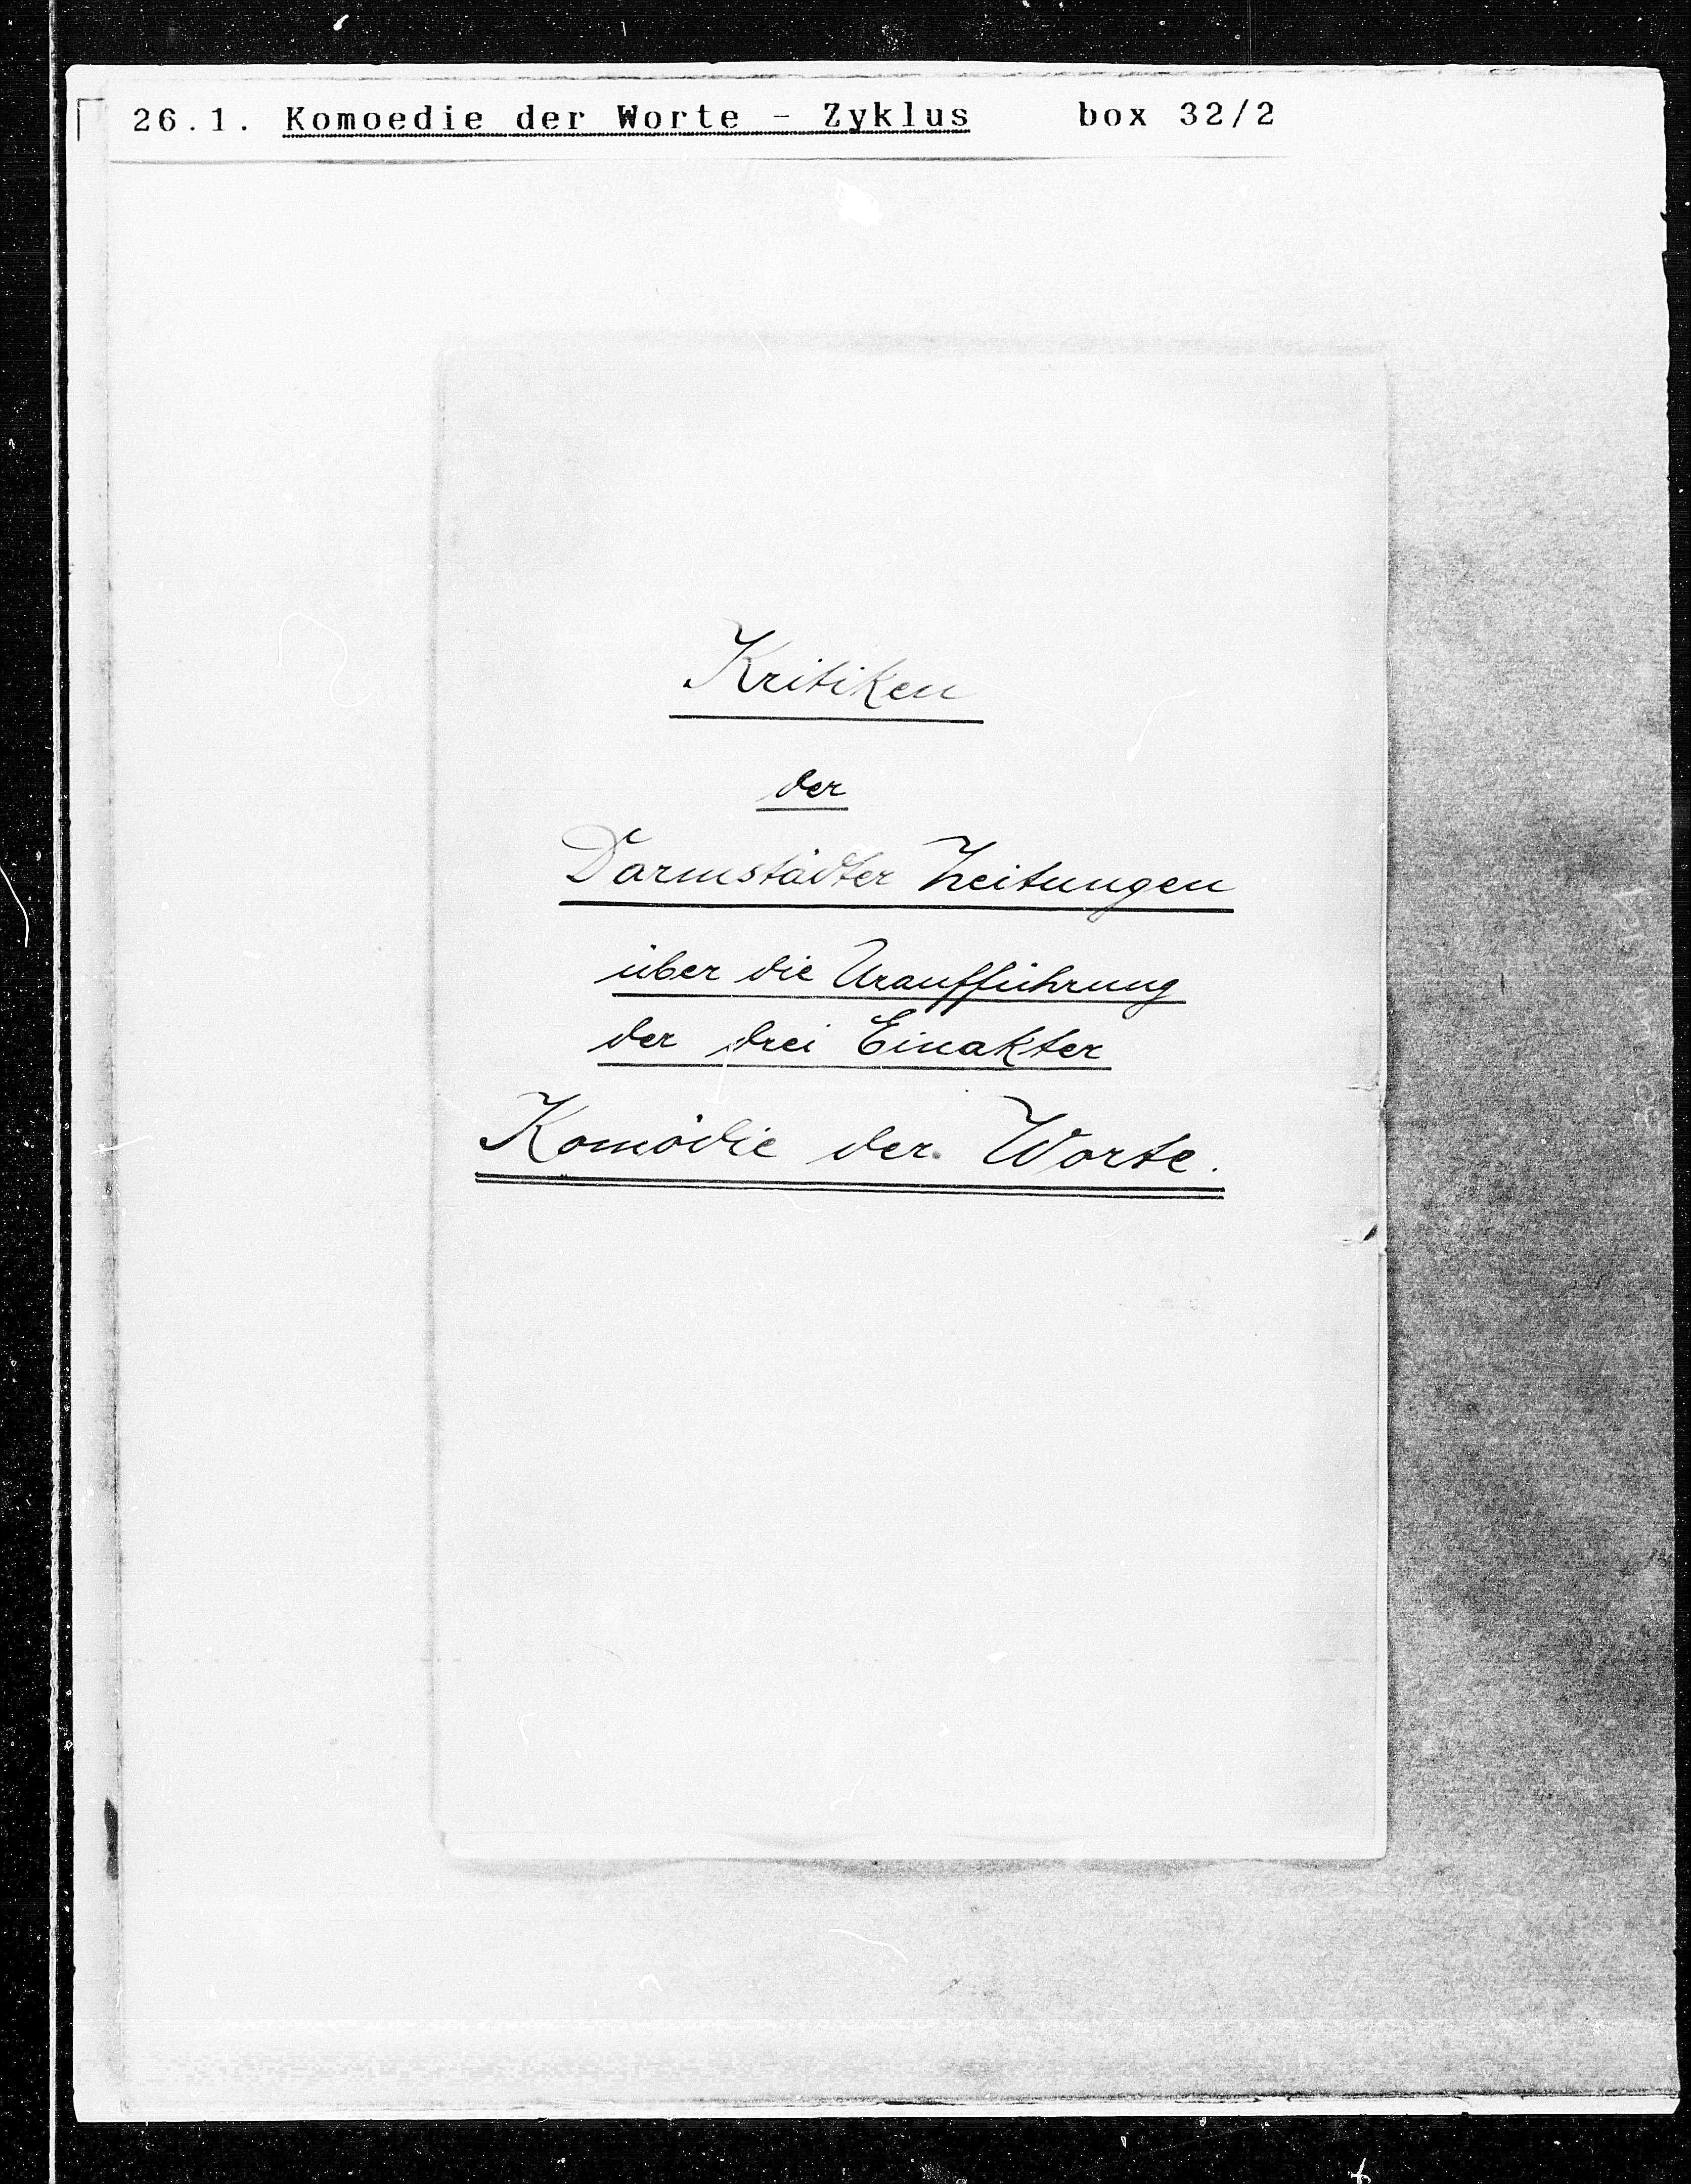 26.1. Komoedie der Worte - Zyklus box 32/2
Kritiken
der
Darmstädter Zeitungen
über die Uraufführung
der drei Einakter
Komödie der Worte.